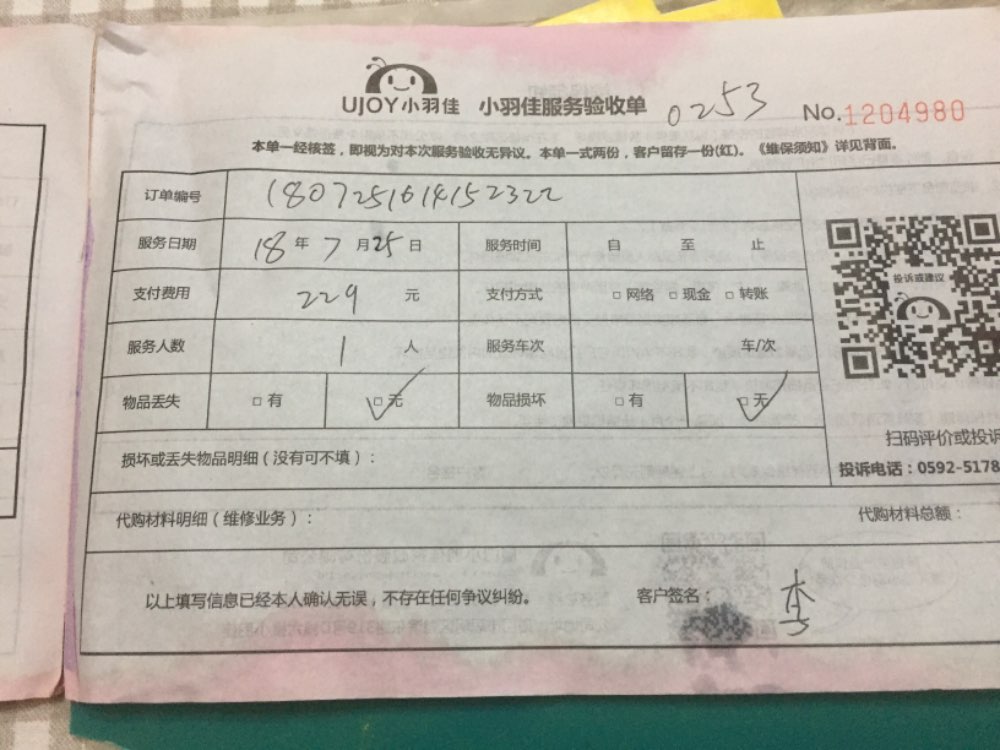 UJOY小羽佳 小羽佳服务验收单 0253 No.1204980
本单一经核签，即视为对本次服务验收无异议。本单一式两份，客户留存一份(红)。《维保须知》详见背面。
订单编号 1807251614152322
服务日期 18 年 7 月 25 日 服务时间 自 至 止
投诉或建议
支付费用 229 元 支付方式 □ 网络 □ 现金 □ 转账
服务人数 1 人 服务车次 车/次
物品丢失 □ 有 □ 无 物品损坏 □ 有 □ 无
扫码评价或投诉
损坏或丢失物品明细（没有可不填）：
投诉电话：0592-5178
代购材料明细（维修业务）： 代购材料总额：
以上填写信息已经本人确认无误，不存在任何争议纠纷。 客户签名：